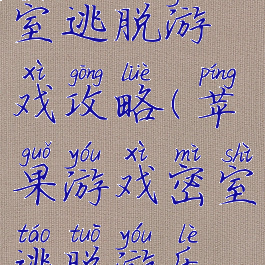 室逃脱游
xì gōng lüè píng
戏攻略(苹
guǒ yóu xì mì shì
果游戏密室
táo tuō yóu lè
逃脱游乐